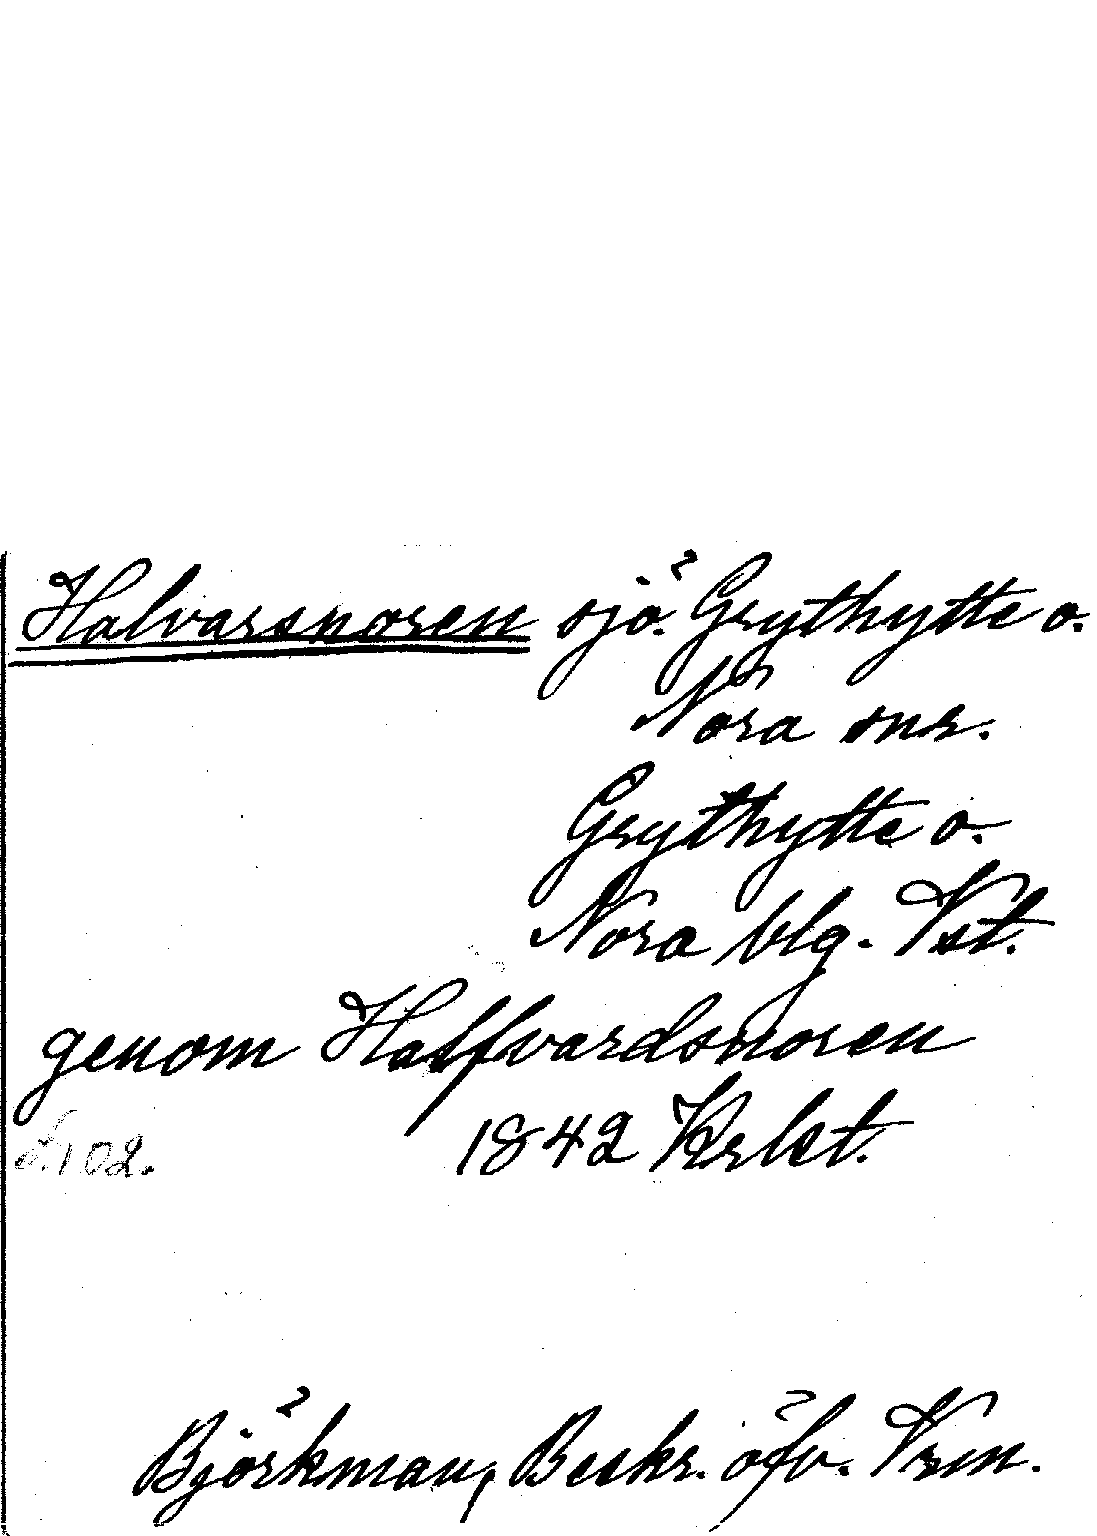 Halvarsnoren sjö. Grythytte o.
Nora snr.
Grythytte o.
Nora blg. Vst.
genom Halfvardsnoren
s. 102. 1842 Krlst.
Björkman, Beskr. öfv. Vrm.